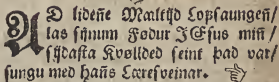 AD lideñe Mꜳltijd Lopsaungeñ/
las sijnum Fødur JEsus miñ/
sijdasta Kvøllded seint þad var/
sungu med hañs Læresveinar.